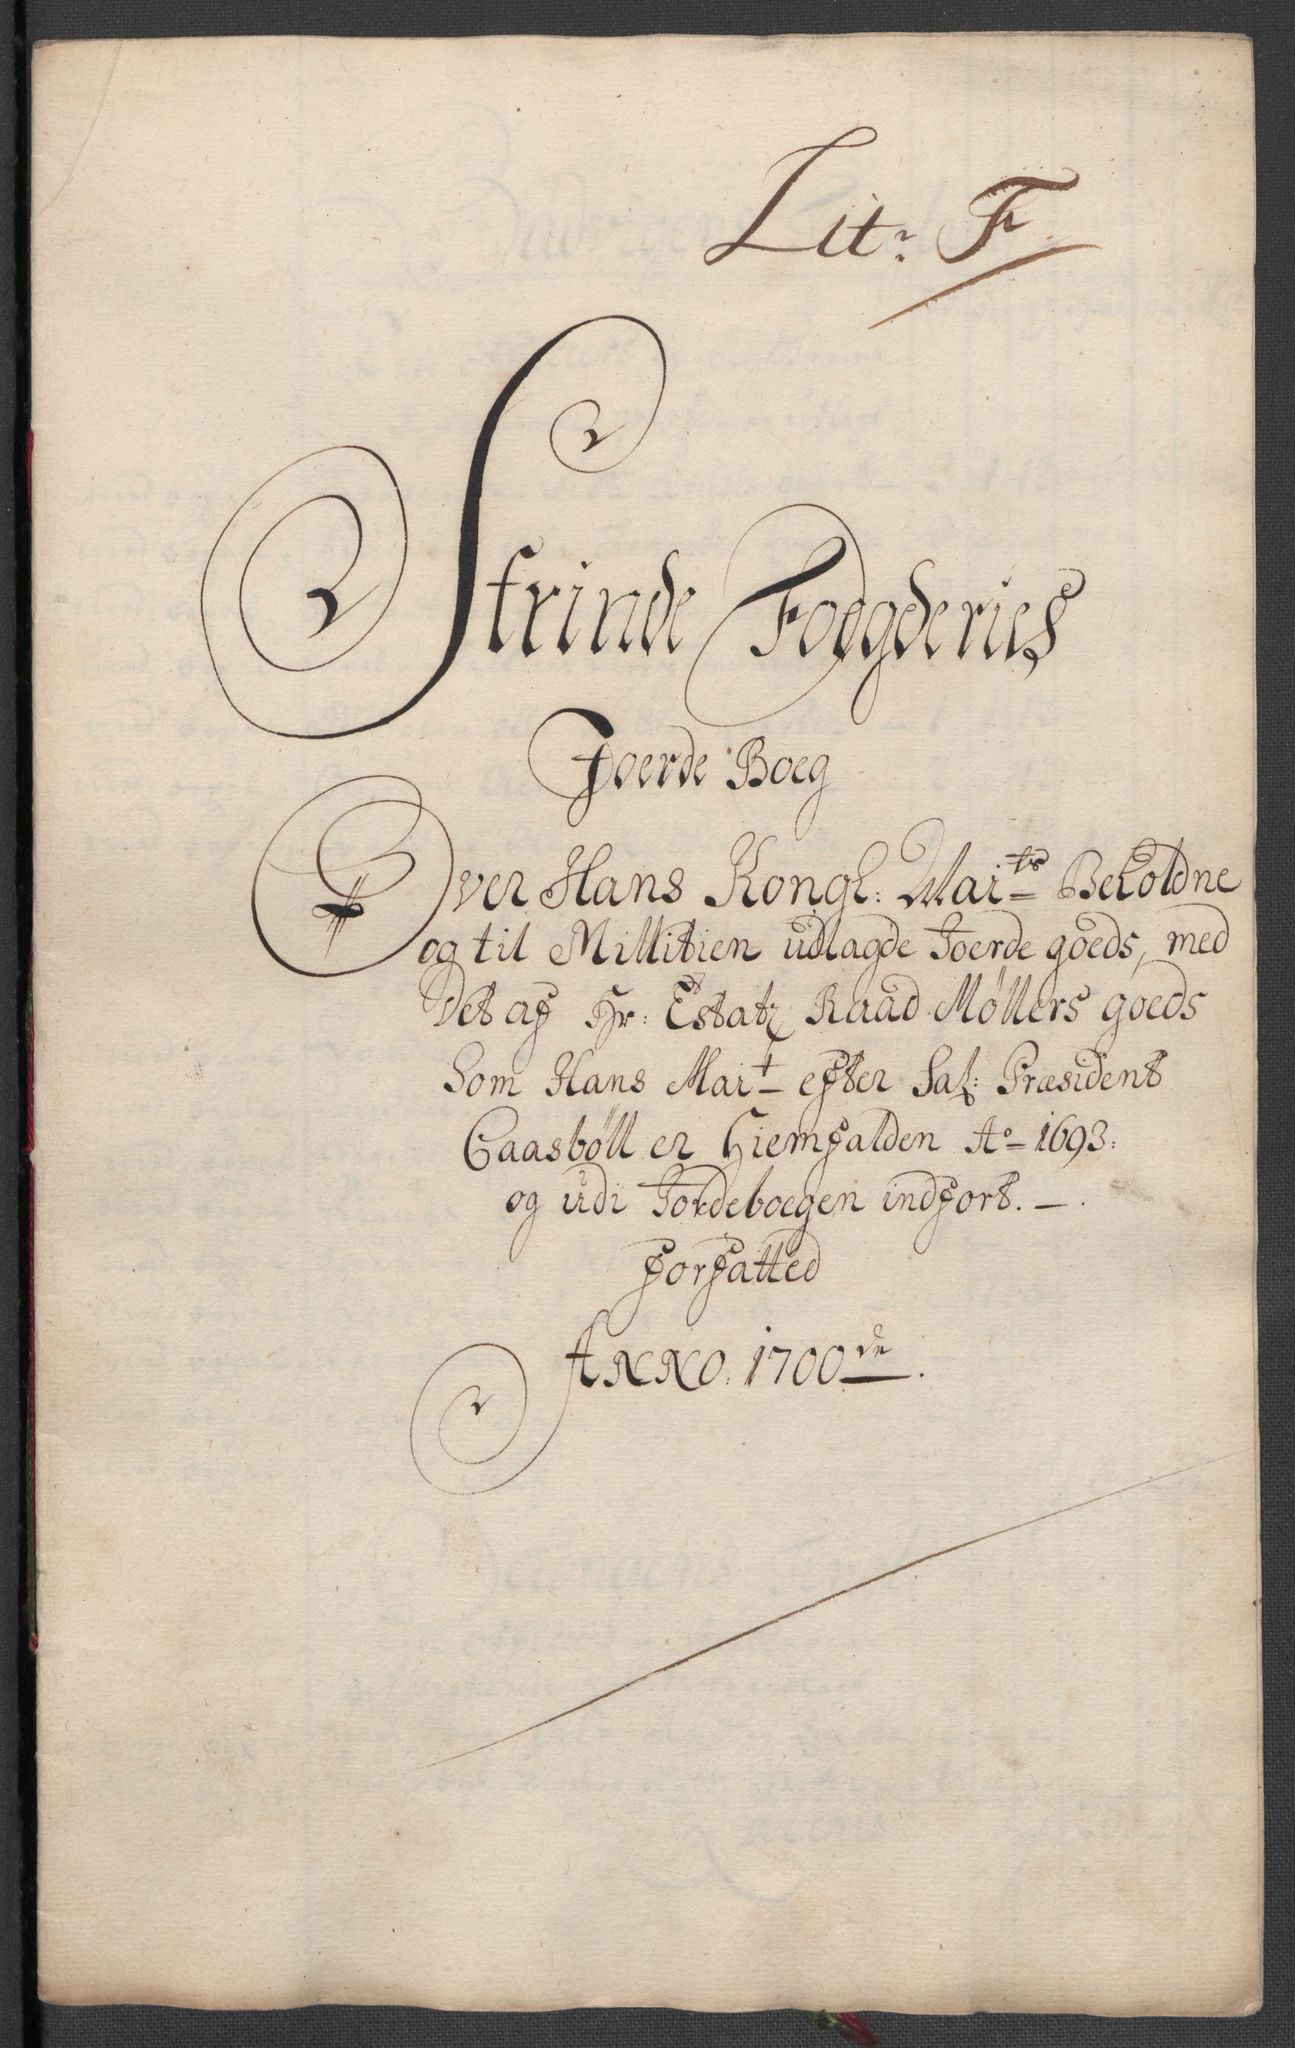 Litr F
Strinde Foegderies
Joerde Boeg
Over Hans Kongl: Maits Beholdne
og til Millitien udlagde Joerde goeds, med
Det af Hr: Estatz Raad Möllers goeds
Som Hans Mait efter Sal: Præsident
Caasböll er hiemfalden Ao 1693.
og udi Jordeboegen indfort. —.
forfatted
ANNO. 1700de.